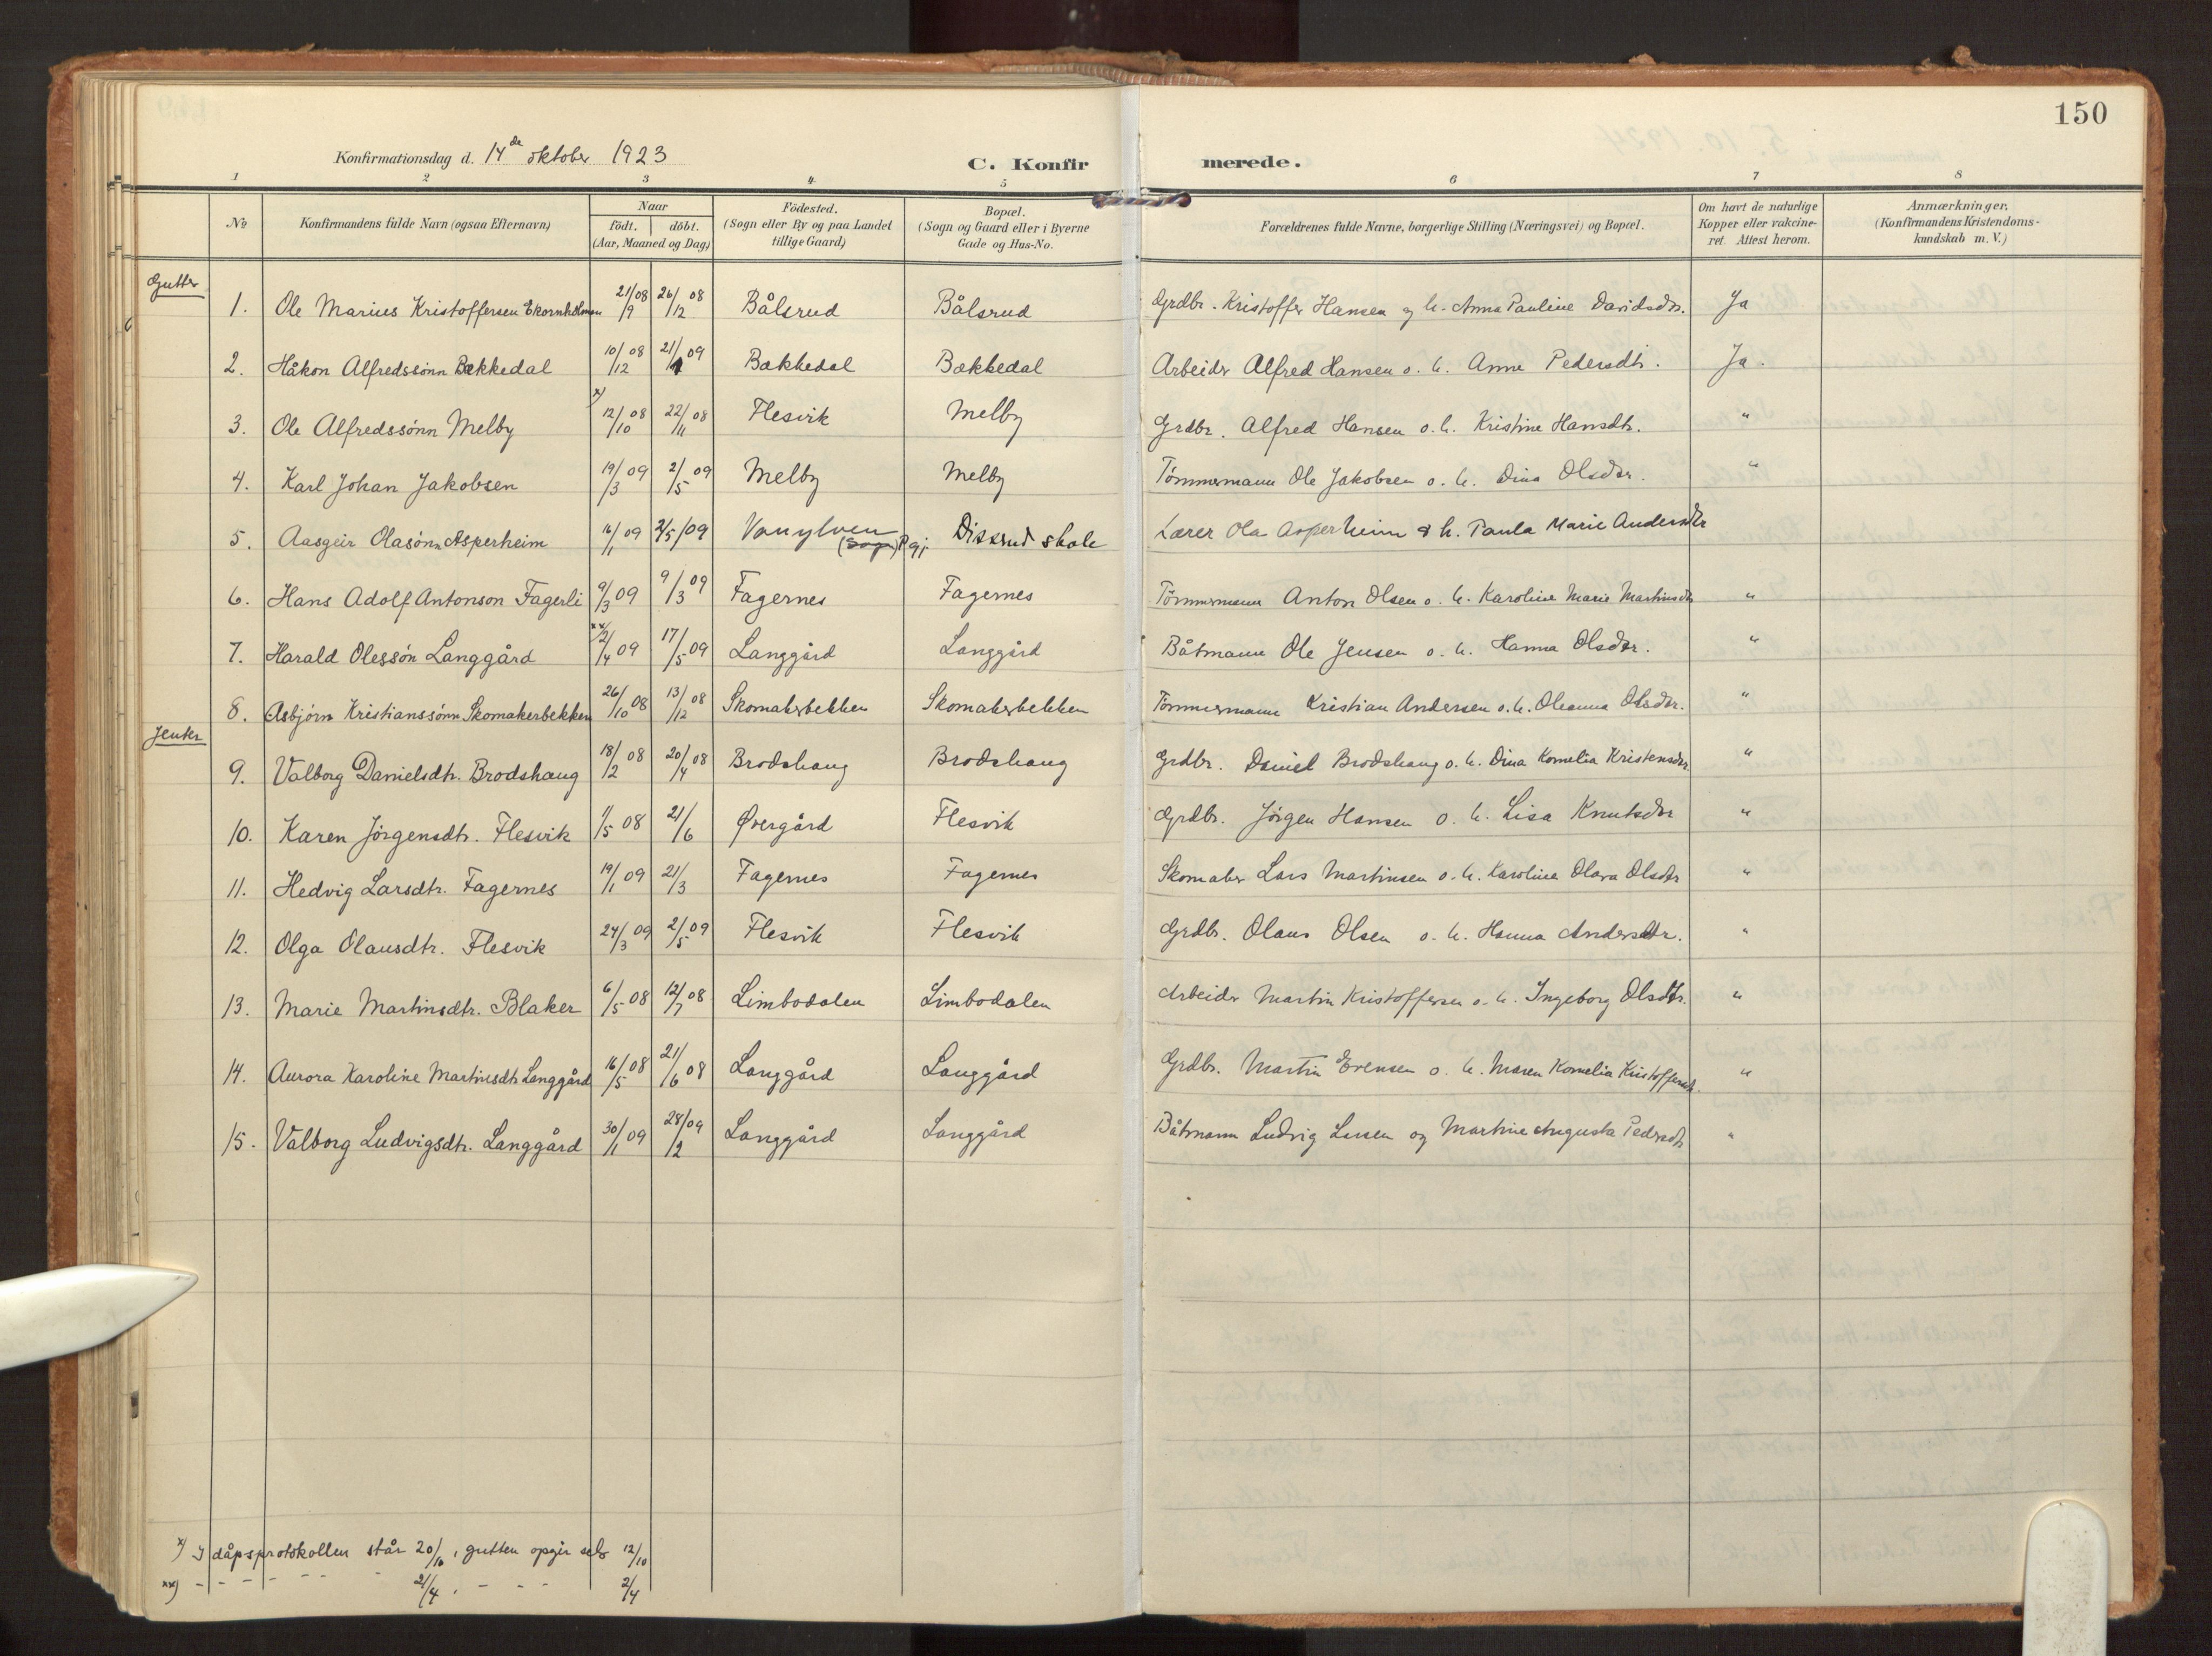 150
Konfirmationsdag d. 14de oktober 1923
C. Konfirmerede.
1 2 3 4 5 6 7 8
No Konfirmandens fulde Navn (ogsaa Efternavn) Naar født. døbt. (Aar, Maaned og Dag) Födested. (Sogn eller By og paa Landet tillige Gaard) Bopæl. (Sogn og Gaard eller i Byerne Gade og Hus-No. Forældrenes fulde Navne, borgerlige Stilling (Næringsvei) og Bopæl. Om havt de naturlige Kopper eller vakcineret. Attest herom. Anmærkninger, (Konfirmandens Kristendomskundskab m. V.)
Gutter
1. Ole Marius Kristoffersen Ekornholmen 21/9 08 26/12 08 Bålsrud Bålsrud Grdbr. Kristoffer Hansen og h. Anna Pauline Davidsdr. Ja
2. Håkon Alfredssönn Bækkedal 10/12 08 21/1 09 Bækkedal Bækkedal Arbeider Alfred Hansen o. h. Anne Pedersdtr. Ja.
3. Ole Alfredssönn Melby x) 12/10 08 22/11 08 Flesvik Melby Grdbr. Alfred Hansen o. h. Kristine Hansdtr. "
4. Karl Johan Jakobsen 19/3 09 2/5 09 Melby Melby Tömmermann Ole Jakobsen o. h. Dina Olsdtr. "
5. Aasgeir Olasönn Asperheim 16/1 09 2/5/09 Vanylven (Sogn) Pgj. Dissrud skole Lærer Ola Asperheim & h. Paula Marie Andersdtr
6. Hans Adolf Antonson Fagerli 9/3 09 9/3 09 Fagernes Fagernes Tömmermann Anton Olsen o. h. Karoline Marie Martinsdtr "
7. Harald Olessön Langgård xx) 2/4 09 17/5 09 Langgård Langgård Båtmann Ole Jensen o. h. Hanna Olsdtr. "
8. Asbjörn Kristianssönn Skomakerbekken 26/10 08 13/12 08 Skomakerbekken Skomakerbekken Tömmermann Kristian Andersen o. h. Oleanna Olsdtr. "
Jenter
9. Valborg Danielsdtr. Brodshaug 18/2 08 20/4 08 Brodshaug Brodshaug Grdbr. Daniel Brodshaug o. h. Dina Kornelia Kristensdtr "
10. Karen Jörgensdtr. Flesvik 1/5 08 21/6 Övergård Flesvik Grdbr. Jörgen Hansen o. h. Lisa Knutsdtr "
11. Hedvig Larsdtr. Fagernes 19/1 09 21/3 Fagernes Fagernes Skomaker Lars Martinsen o. h. Karoline Olava Olsdtr "
12. Olga Olausdtr. Flesvik 24/3 09 2/5 09 Flesvik Flesvik Grdbr. Olaus Olsen o. h. Hanna Andersdtr. "
13. Marie Martinsdtr. Blaker 6/5 08 12/7 08 Limbodalen Limbodalen Arbeider Martin Kristoffersen o. h. Ingeborg Olsdtr. "
14. Aurora Karoline Martinsdtr. Langgård 16/5 08 21/6 08 Langgård Langgård Grdbr. Martin Evensen o. h. Maren Kornelia Kristoffersdtr. "
15. Valborg Ludvigsdtr. Langgård 30/1 09 28/2 09 Langgård Langgård Båtmann Ludvig og Martine Augusta Pedersdtr "
x) I dåpsprotokollen står 20/10, gutten opgir selv 12/10
xx) - - - - - - - 21/4, - - - 2/4